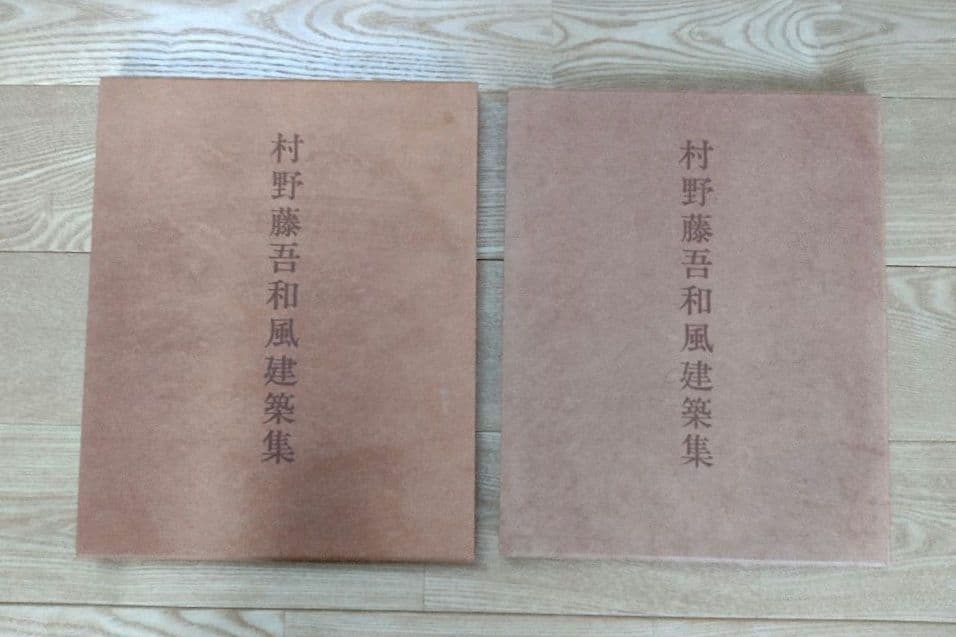 村野藤吾和風建築集
村野藤吾和風建築集